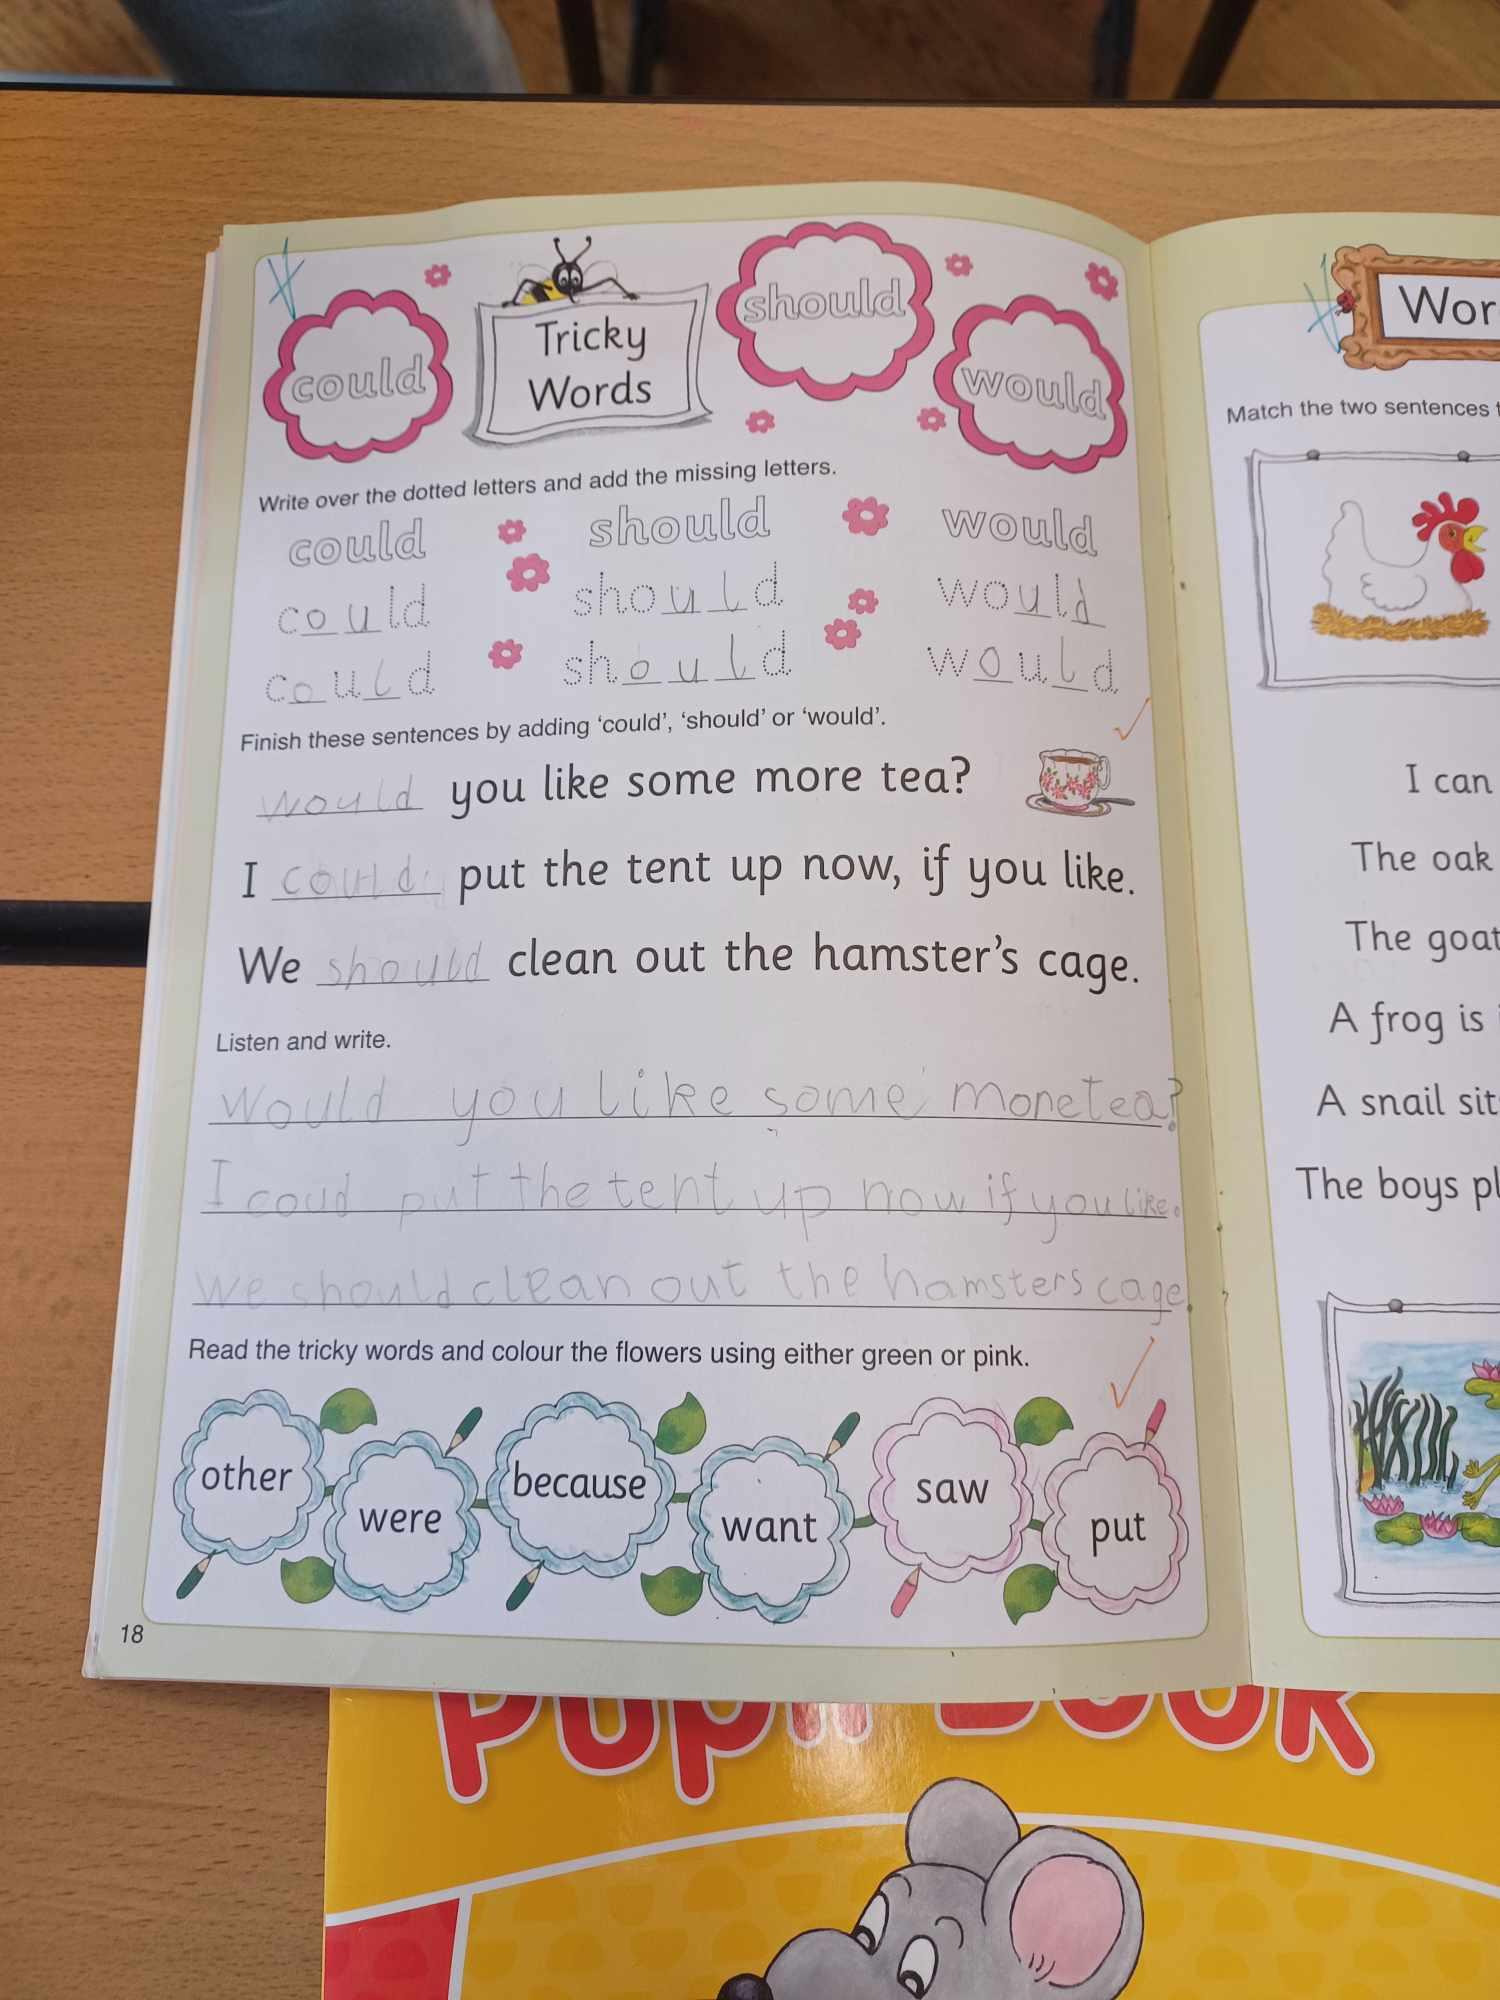 could
Tricky
Words
should
would
Wor
Write over the dotted letters and add the missing letters.
could should would
could should would
could should would
Finish these sentences by adding ‘could’, ‘should’ or ‘would’.
would you like some more tea?
I could put the tent up now, if you like.
We should clean out the hamster’s cage.
Listen and write.
Would you like some more tea?
I coud put the tent up now if you like.
We should clean out the hamsters cage.
Read the tricky words and colour the flowers using either green or pink.
other were because want saw put
18
Match the two sentences
I can
The oak
The goat
A frog is
A snail sits
The boys pl
Pupil Book